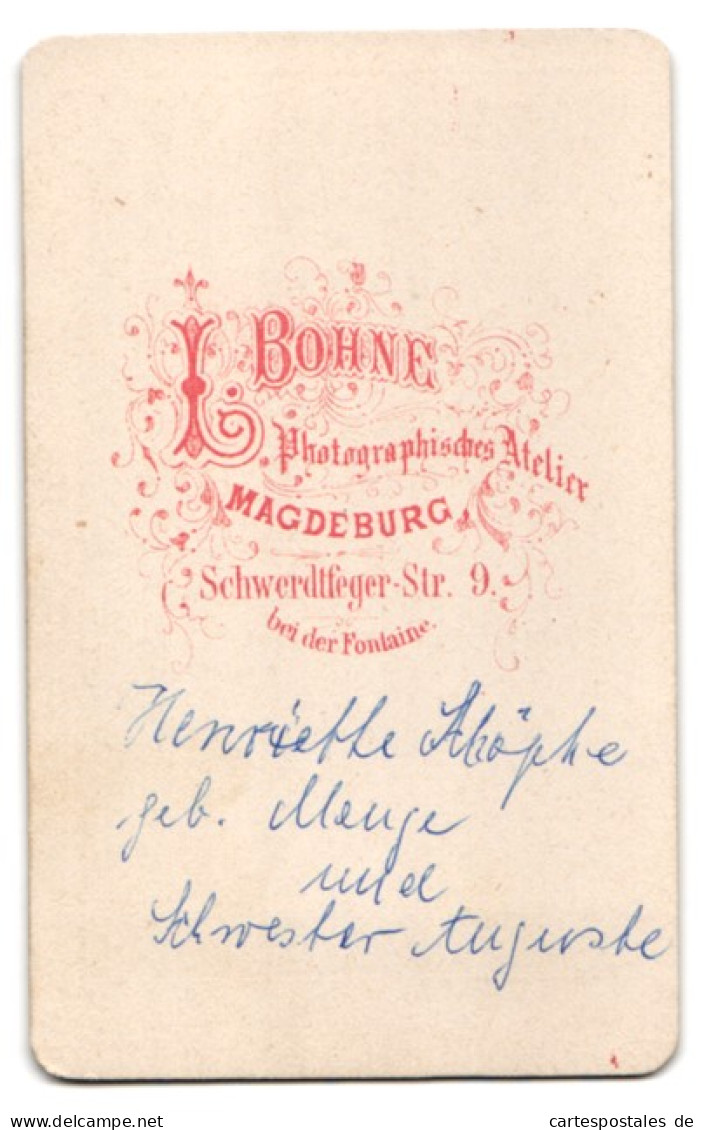 L. BOHNE
Photographisches Atelier
MAGDEBURG,
Schwerdtfeger-Str. 9.
bei der Fontaine.
Henriette
geb. Menge
und
Schwester Auguste
cartespostales de